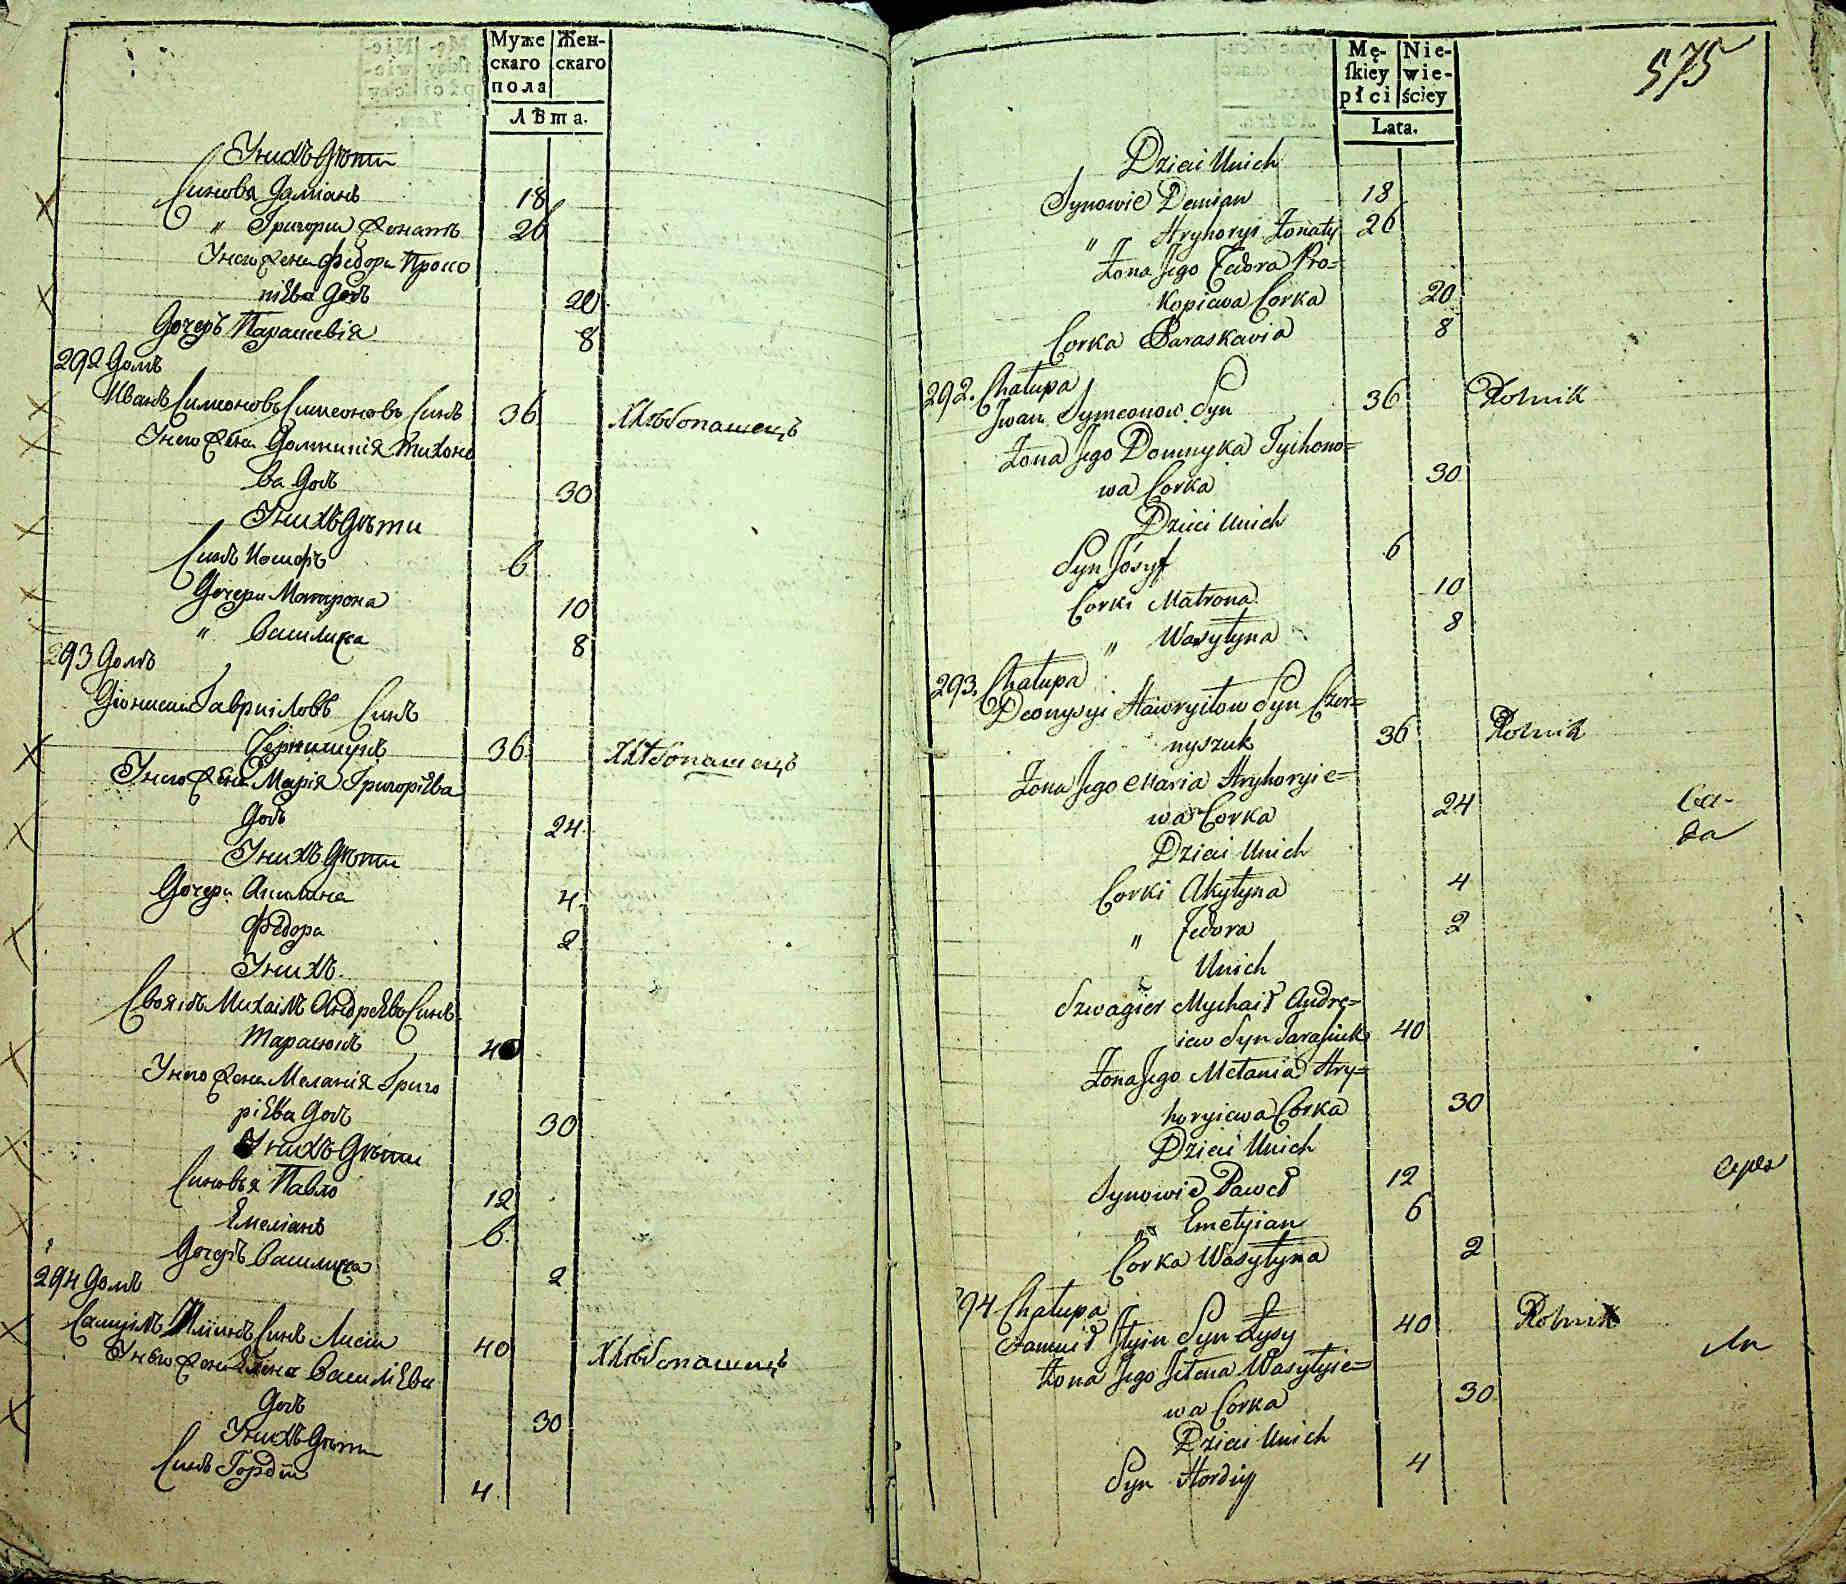 Муже
скаго
пола
Жен-
скаго
Лѣта.
Унихъ Дѣти
Синовя Даміанъ 18
" Григори Жонатъ 26
Унего Жена Федора Проко
піЕва Доч 20
Дочеръ Параскевія 8
292 Домъ
Иванъ Симеоновъ Синъ 36 Хлѣбопашецъ
Унего Жена Домникія Тихоно
ва Доч 30
Унихъ Дѣти
Синъ Иосифъ 6
Дочери Матрона 10
" Василина 8
293 Домъ
Діонисий Гавриіловъ Синъ
Чернишукъ 36 Хлѣбопашецъ
Унего Жена Марія ГригоріЕва
Доч 24
Унихъ Дѣти
Дочери Акилина 4
Федора 2
Унихъ
Своякъ Михаілъ АндреЕвъ Синъ
Тарасюкъ 40
Унего Жена Меланія Григо
ріЕва Доч 30
Унихъ Дѣти
Синовья Павло 12
Емеліанъ 6
Дочеръ Василина 2
294 Домъ
Самуілъ Іліинъ Синъ Лисий 40 Хлѣбопашецъ
Унего Жена Елена ВасиліЕва
Доч 30
Унихъ Дѣти
Синъ Гордій 4
575
Mę-
ſkiey
płci
Nie-
wie-
ściey
Lata.
Dzieci Unich
Synowie Demian 18
" Hryhoryi Żonaty 26
Żona Jego Fedora Pro=
kopiewa Corka 20
Corka Paraskawia 8
292. Chałupa
Jwan Symeonow Syn 36 Rolnik
Żona Jego Domnyka Tychono=
wa Corka 30
Dzieci Unich
Syn Jósyf 6
Corki Matrona 10
" Wasyłyna 8
293. Chałupa
Deonysyi Hawryłow Syn Czer=
nyszuk 36 Rolnik
Żona Jego Maria Hryhoryie=
wa Corka 24
Dzieci Unich
Corki Akyłyna 4
" Fedora 2
Unich
Szwagier Mychaił Andre=
iew Syn Tarasiuk 40
Żona Jego Mełania Hry=
horyiewa Corka 30
Dzieci Unich
Synowie Paweł 12
" Emełyian 6
Corka Wasyłyna 2
294 Chałupa
Samuił Jlyin Syn Łysy 40 Rolnik
Żona Jego Jełena Wasyłyie=
wa Corka 30
Dzieci Unich
Syn Hordiy 4